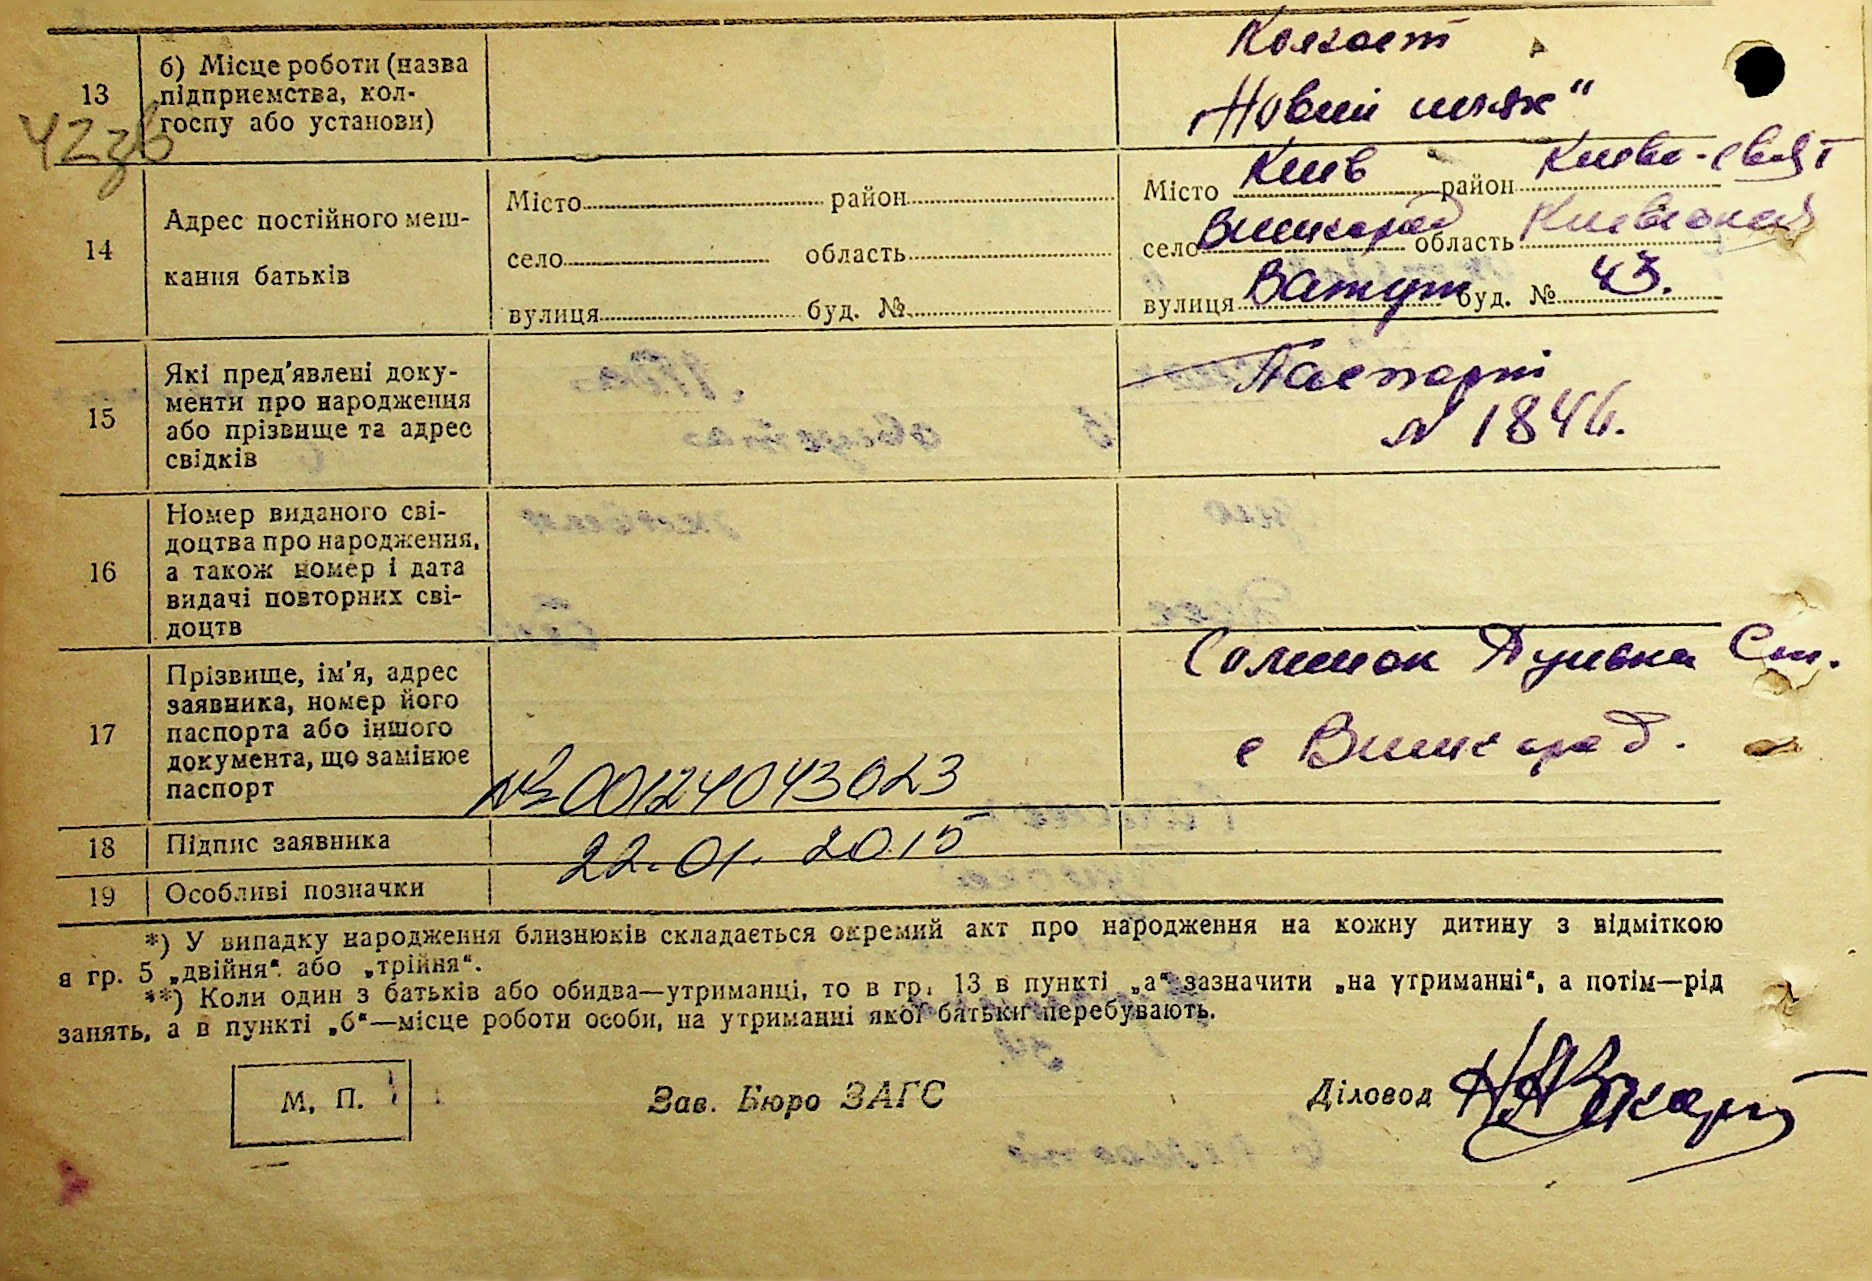 13
б) Місце роботи (назва
підприємства, кол-
госпу або установи)
Колгосп
„Новий шлях"
14
Адрес постійного меш-
кання батьків
Місто район
село область
вулиця буд. №
Місто Київ район Києво-Свят
село Вишгород область Київської
вулиця Ватут буд. № 43.
15
Які пред'явлені доку-
менти про народження
або прізвище та адрес
свідків
Паспорт
N 1846.
16
Номер виданого сві-
доцтва про народження,
а також номер і дата
видачі повторних сві-
доцтв
17
Прізвище, ім'я, адрес
заявника, номер його
паспорта або іншого
документа, що замінює
паспорт
Ст.
с Вишгород.
№ 00124043023
18 Підпис заявника
22.01.2015
19 Особливі позначки
*) У випадку народження близнюків складається окремий акт про народження на кожну дитину з відміткою
в гр. 5 „двійня" або „трійня".
**) Коли один з батьків або обидва—утриманці, то в гр. 13 в пункті „а" зазначити „на утриманні", а потім—рід
занять, а в пункті „б"—місце роботи особи, на утриманні якої батьки перебувають.
М. П.
Зав. Бюро ЗАГС
Діловод